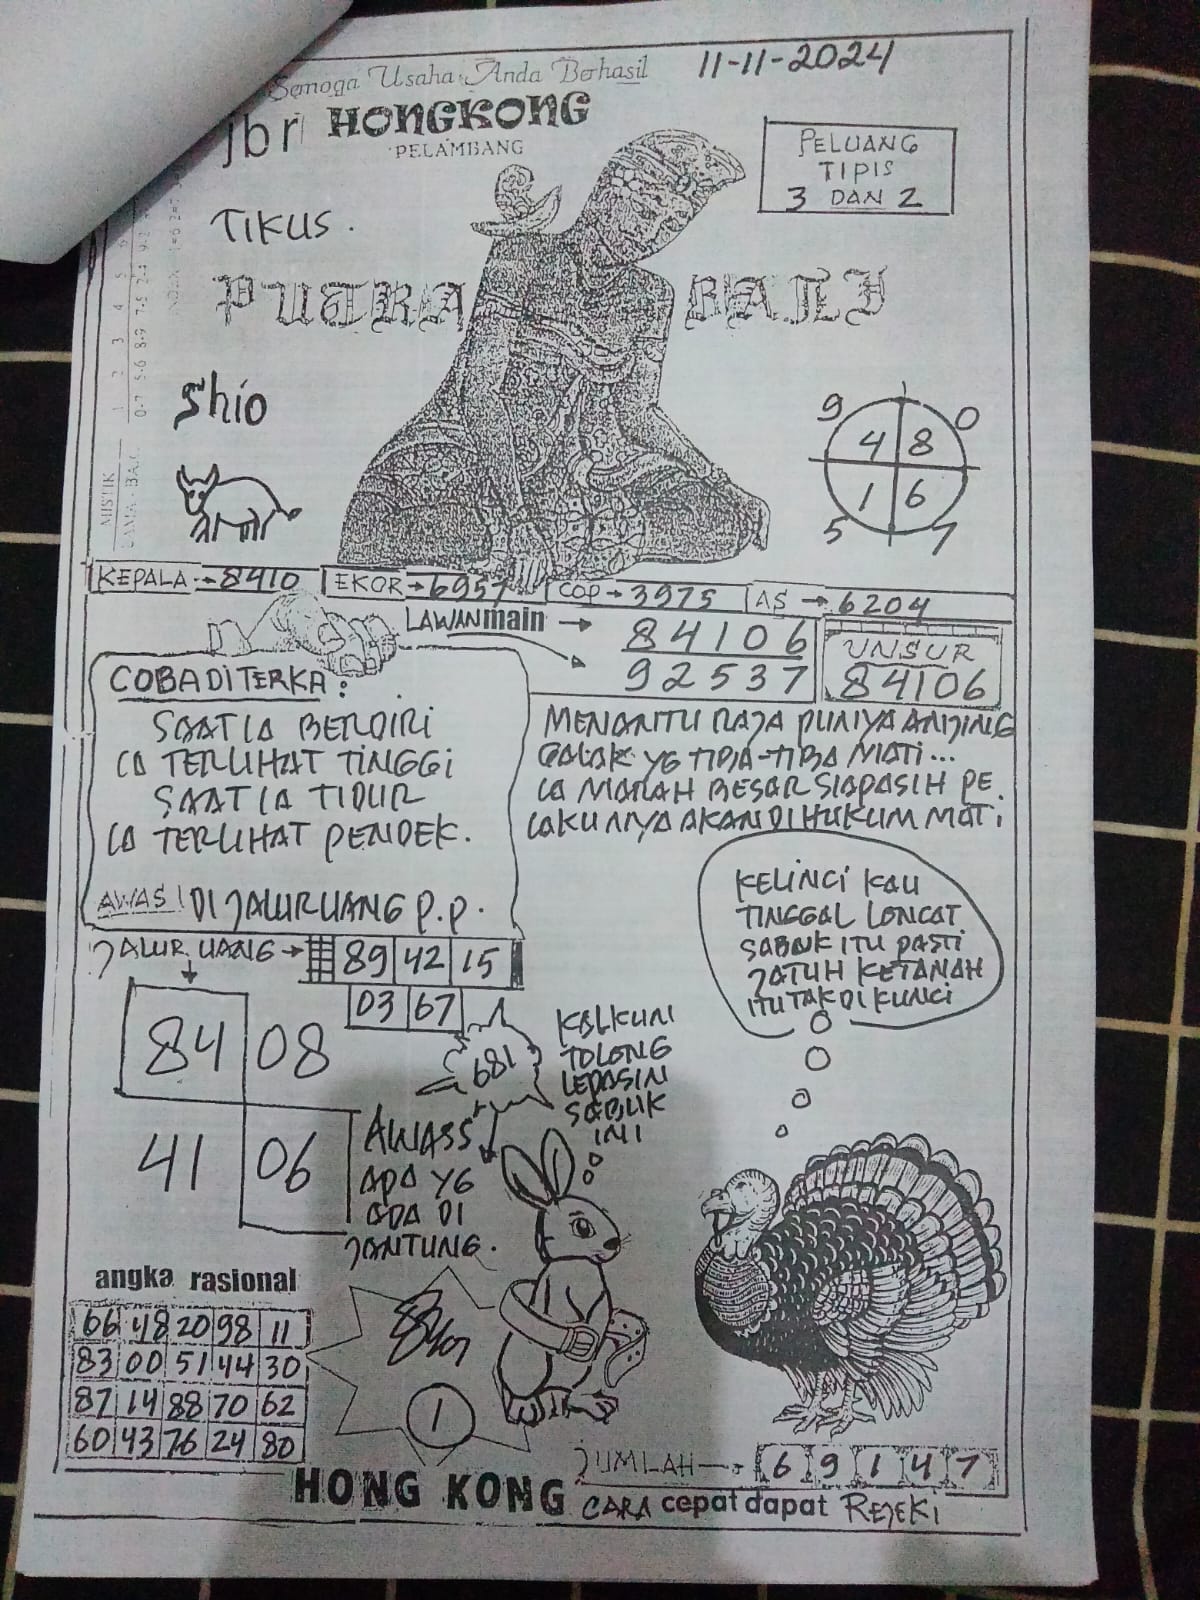 Semoga Usaha Anda Berhasil
11-11-2024
jbr HONGKONG
PELAMBANG
PELUANG
TIPIS
3 DAN 2
TIKUS.
PUTRA BALI
Shio
9 0
4 8
1 6
5 7
MISTIK
1 2 3 4 5
0-7 5-6 8-9
KEPALA → 8410
EKOR → 6957
COP → 3975
AS → 6204
LAWAN main → 84106
92537
UNSUR
84106
COBA DITERKA:
SAAT IA BERDIRI
IA TERLIHAT TINGGI
SAAT IA TIDUR
IA TERLIHAT PENDEK.
AWAS! DI JALUR UANG P.P.
MENANTU RAJA PUNIYA ANJING
GALAK YG TIBA-TIBA MATI...
IA MARAH BESAR SIAPASIH PE
LAKUNYA AKAN DI HUKUM MATI
KELINCI KAU
TINGGAL LONCAT
SABUK ITU PASTI
JATUH KETANAH
ITU TAK DI KUNCI
JALUR UANG → 89 42 15
03 67
84 08
41 06
681
KALKUN
TOLONG
LEPASIN
SABUK
INI
AWASS
APA YG
ADA DI
JANTUNG.
angka rasional
66 48 20 98 11
83 00 51 44 30
87 14 88 70 62
60 43 76 24 80
1
JUMLAH → 6 9 1 4 7
HONG KONG CARA cepat dapat REJEKI